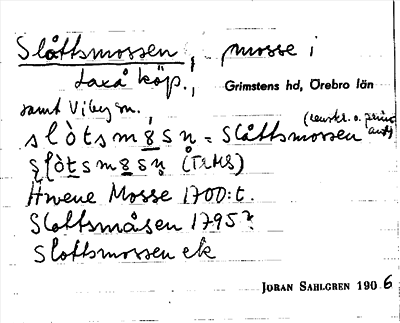 Slåttsmossen, mosse i
Laxå köp., Grimstens hd, Örebro län
samt Viby sn.
slòtsmɞsn = Slåttsmossen
slòtsmɞsn (TLMS)
Ärvene Mosse 1700:t.
Slottsmåsen 1795
Slottsmossen ek
JÖRAN SAHLGREN 1906